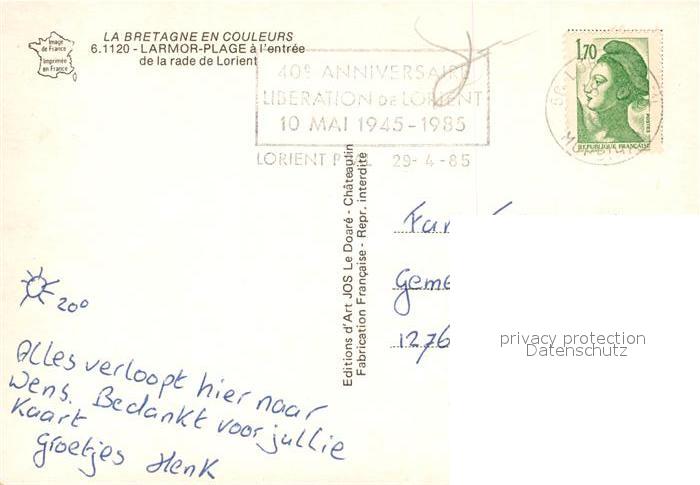 LA BRETAGNE EN COULEURS
6.1120 - LARMOR-PLAGE à l'entrée
de la rade de Lorient
Image
de France
Imprimée
en France
40e ANNIVERSAIRE
LIBERATION DE LORIENT
10 MAI 1945-1985
LORIENT 29-4-85
1,70
POSTES
REPUBLIQUE FRANCAISE
56 LO
MORBIHAN
Editions d'Art JOS Le Doaré - Châteaulin
Fabrication Française - Repr. interdite
Fam
Geme
1276
privacy protection
Datenschutz
20°
Alles verloopt hier naar
wens. Bedankt voor jullie
Kaart
Groetjes Henk